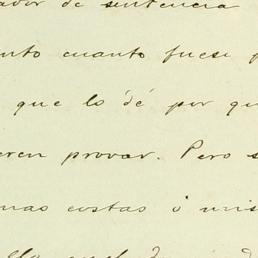 ador de sentencia
nto cuanto fuese p
que lo dé por qu
eren provar. Pero s
mas costas o mis